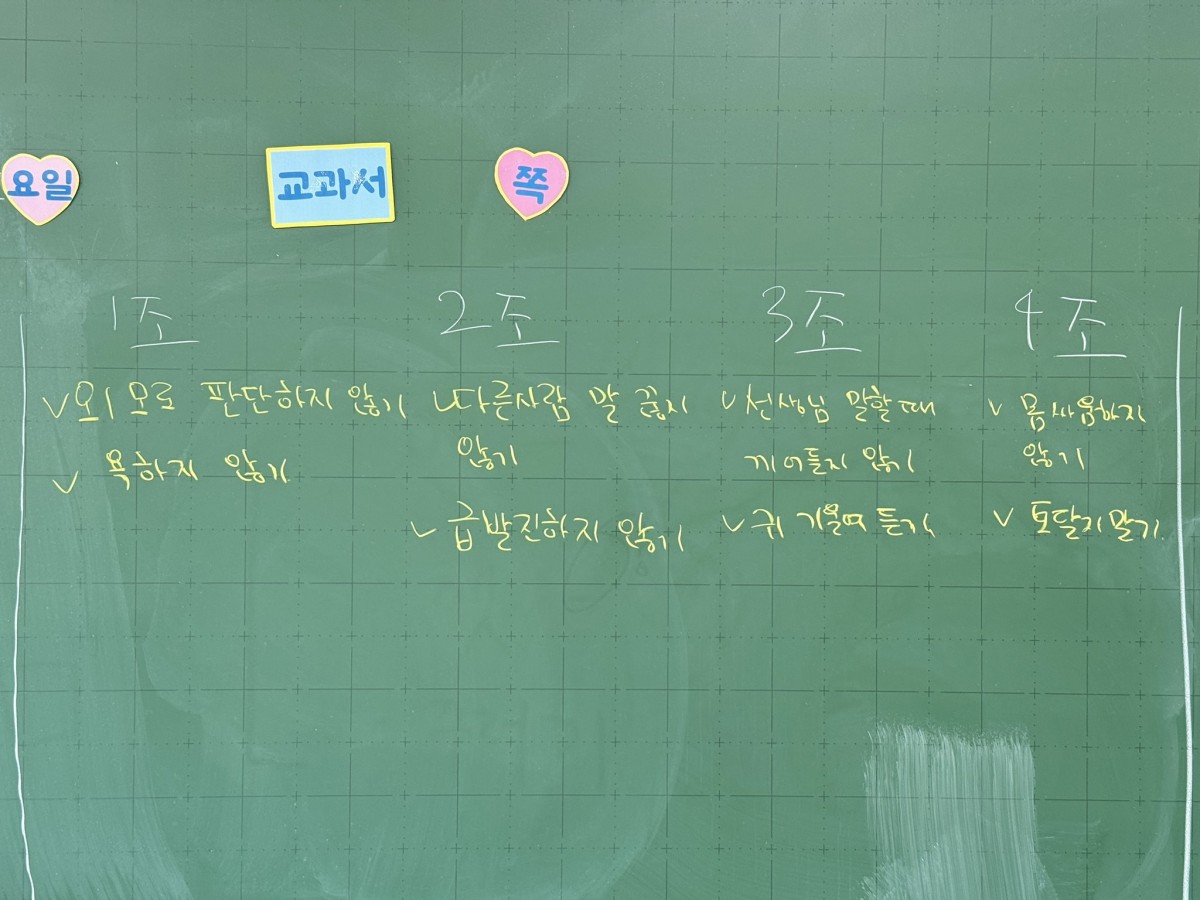 요일
교과서
쪽
1조
∨외모로 판단하지 않기
∨ 욕하지 않기
2조
∨다른사람 말 끊지
않기
∨ 급발진하지 않기
3조
∨선생님 말할때
끼어들지 않기
∨귀 기울여 듣기
4조
∨ 몸싸움하지
않기
∨ 토달지말기.